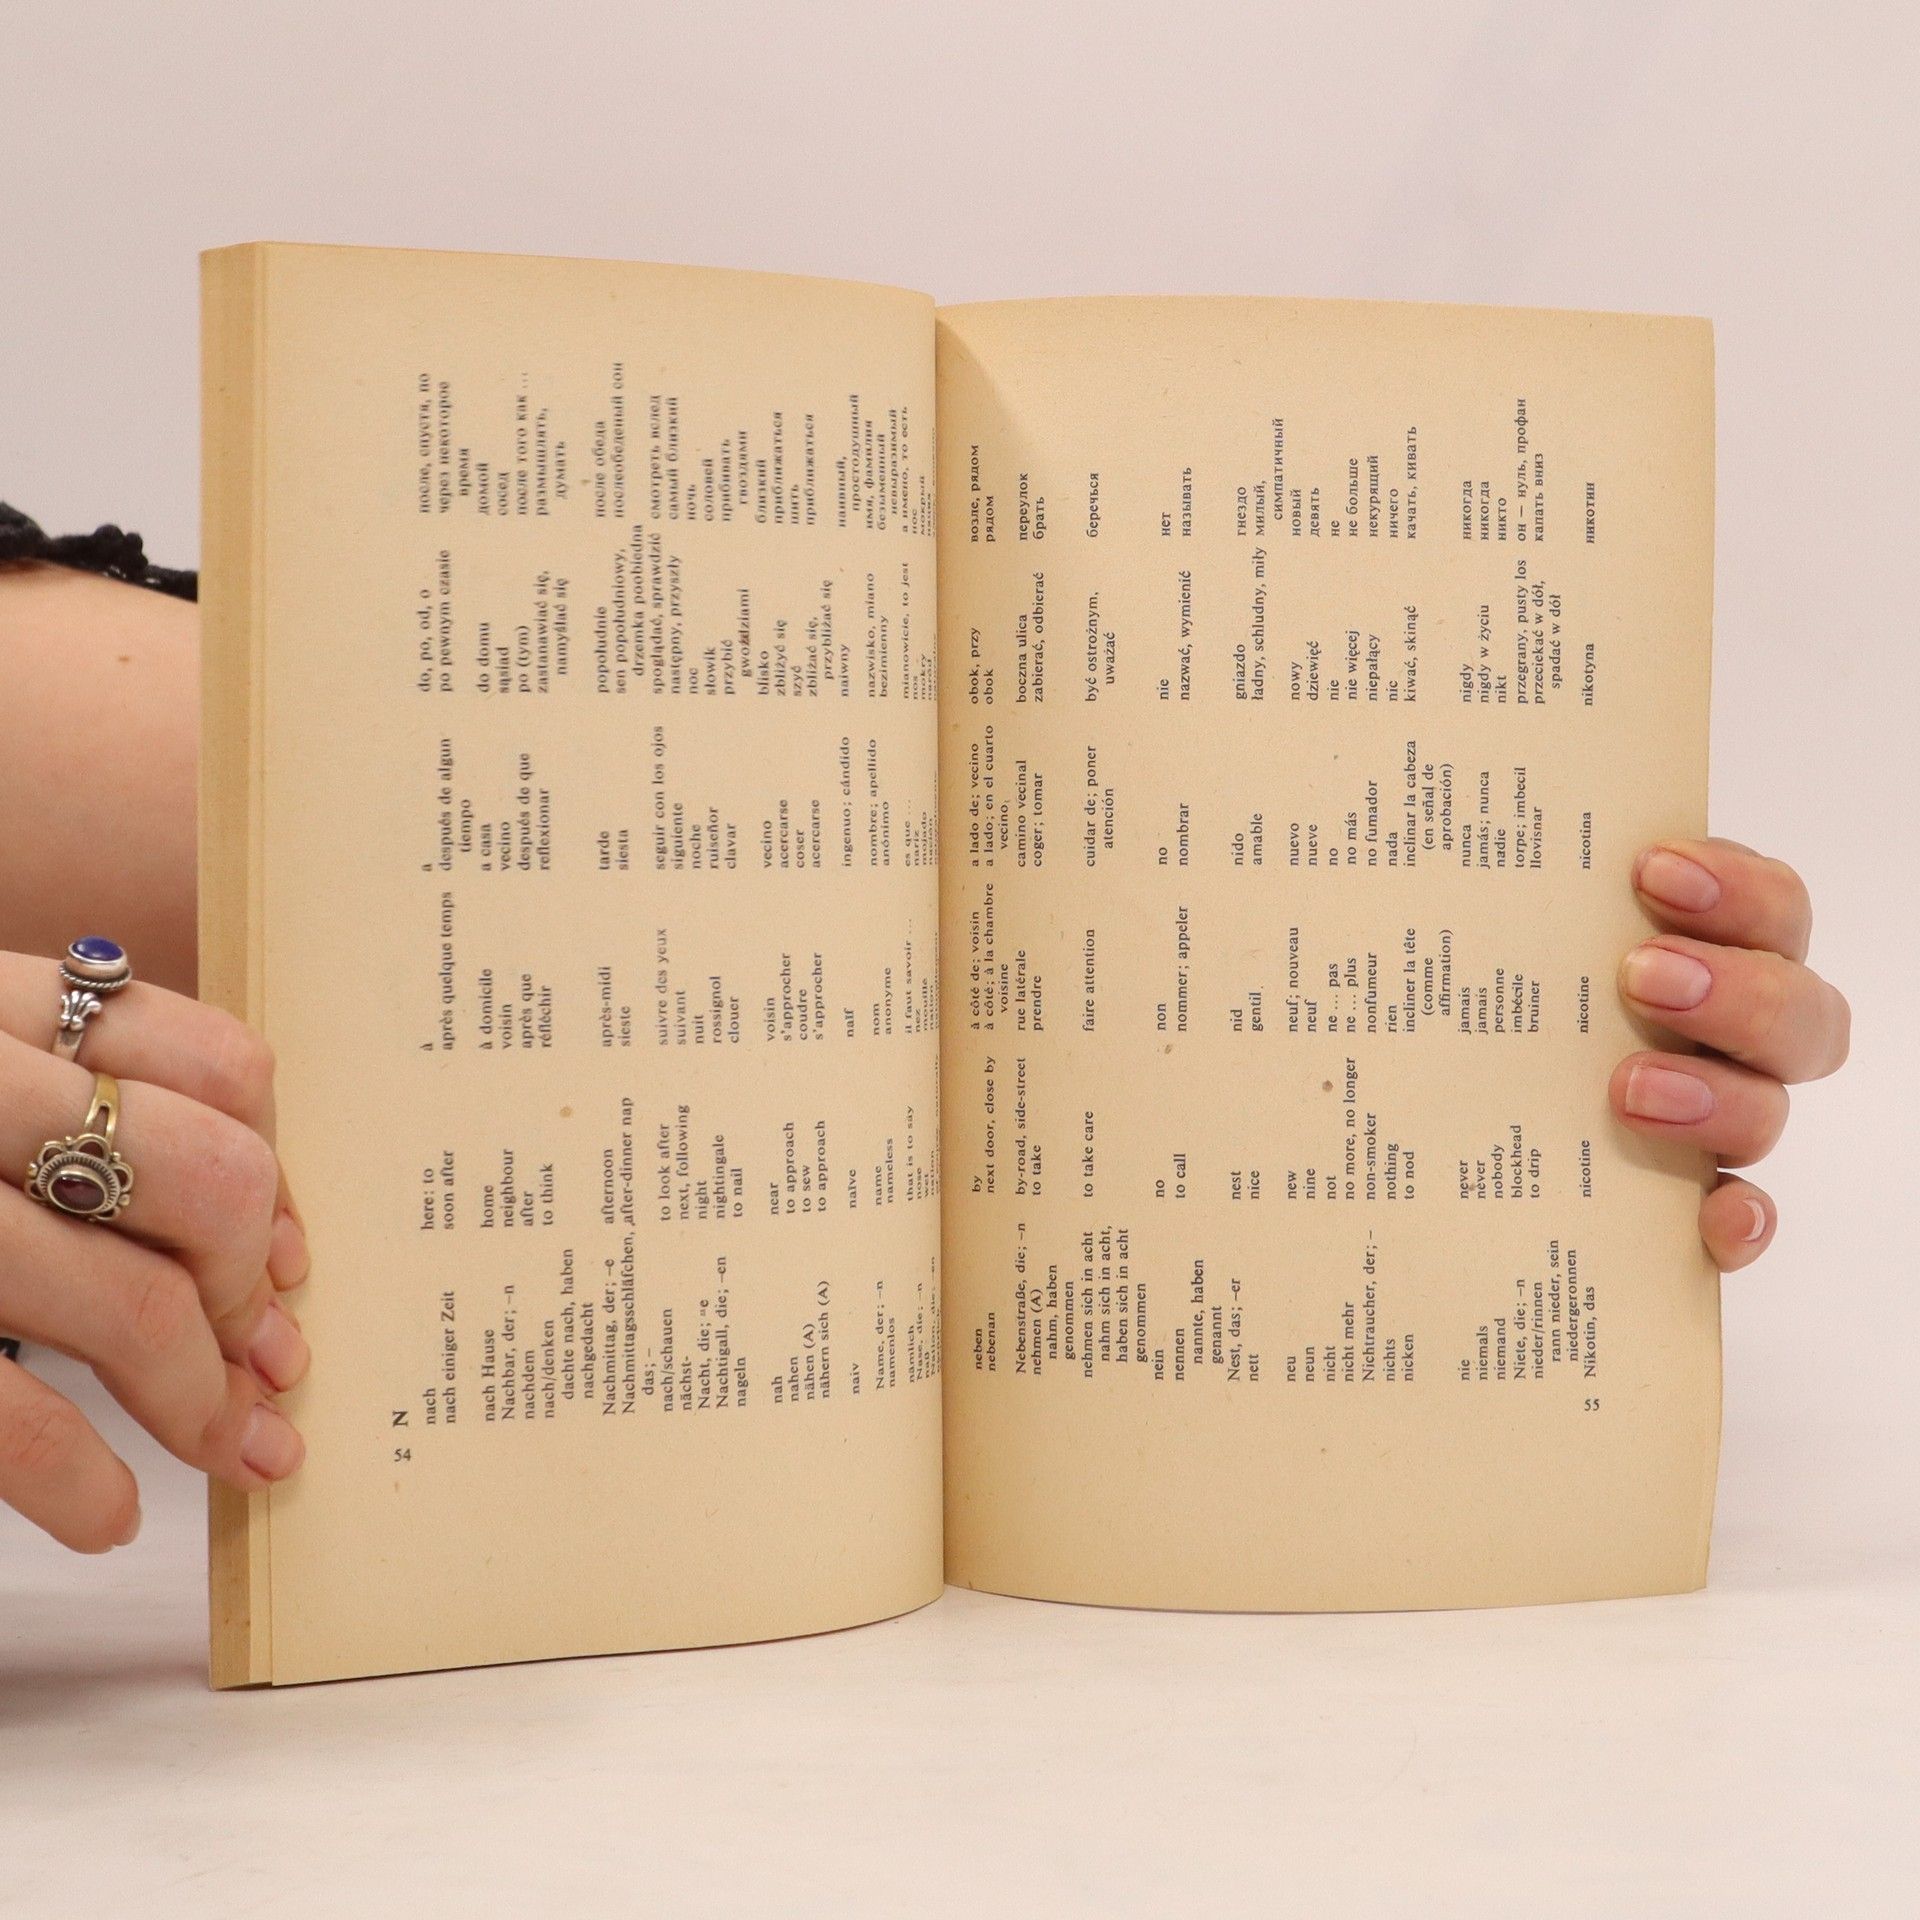 54 N
nach here: to à a do, po, od, o после, спустя, по
nach einiger Zeit soon after après quelque temps después de algun po pewnym czasie через некоторое
tiempo время
nach Hause home à domicile a casa do domu домой
Nachbar, der; –n neighbour voisin vecino sąsiad сосед
nachdem after après que después de que po (tym) после того как ...
nach/denken to think réfléchir reflexionar zastanawiać się, размышлять,
dachte nach, haben namyślać się думать
nachgedacht
Nachmittag, der; –e afternoon après-midi tarde popołudnie после обеда
Nachmittagsschläfchen, after-dinner nap sieste siesta sen popołudniowy, послеобеденый сон
das; – drzemka poobiedna
nach/schauen to look after suivre des yeux seguir con los ojos spoglądać, sprawdzić смотреть вслед
nächst- next, following suivant siguiente następny, przyszły самый близкий
Nacht, die; ⸚e night nuit noche noc ночь
Nachtigall, die; –en nightingale rossignol ruiseñor słowik соловей
nageln to nail clouer clavar przybić прибивать
gwoździami гвоздями
nah near voisin vecino blisko близкий
nahen to approach s'approcher acercarse zbliżyć się приближаться
nähen (A) to sew coudre coser szyć шить
nähern sich (A) to approach s'approcher acercarse zbliżać się, приближаться
przybliżać się
naiv naïve naïf ingenuo; cándido naiwny наивный,
простодушный
Name, der; –n name nom nombre; apellido nazwisko, miano имя, фамилия
namenlos nameless anonyme anónimo bezimienny безыменный
невыразимый
nämlich that is to say il faut savoir ... es que ... mianowicie, to jest а имено, то есть
Nase, die; –n nose nez nariz nos нос
naß wet mouillé mojado mokry мокрый
neben by à côté de; voisin a lado de; vecino obok, przy возле, рядом
nebenan next door, close by à côté; à la chambre a lado; en el cuarto obok рядом
voisine vecino
Nebenstraße, die; –n by-road, side-street rue latérale camino vecinal boczna ulica переулок
nehmen (A) to take prendre coger; tomar zabierać, odbierać брать
nahm, haben
genommen
nehmen sich in acht to take care faire attention cuidar de; poner być ostrożnym, беречься
nahm sich in acht, atención uważać
haben sich in acht
genommen
nein no non no nie нет
nennen to call nommer; appeler nombrar nazwać, wymienić называть
nannte, haben
genannt
Nest, das; –er nest nid nido gniazdo гнездо
nett nice gentil amable ładny, schludny, miły милый,
симпатичный
neu new neuf; nouveau nuevo nowy новый
neun nine neuf nueve dziewięć девять
nicht not ne ... pas no nie не
nicht mehr no more, no longer ne ... plus no más nie więcej не больше
Nichtraucher, der; – non-smoker nonfumeur no fumador niepałący некурящий
nichts nothing rien nada nic ничего
nicken to nod incliner la tête inclinar la cabeza kiwać, skinąć качать, кивать
(comme (en señal de
affirmation) aprobación)
nie never jamais nunca nigdy никогда
niemals never jamais jamás; nunca nigdy w życiu никогда
niemand nobody personne nadie nikt никто
Niete, die; –n blockhead imbécile torpe; imbecil przegrany, pusty los он — нуль, профан
nieder/rinnen to drip bruiner llovisnar przeciekać w dół, капать вниз
rann nieder, sein spadać w dół
niedergeronnen
Nikotin, das nicotine nicotine nicotina nikotyna никотин
55